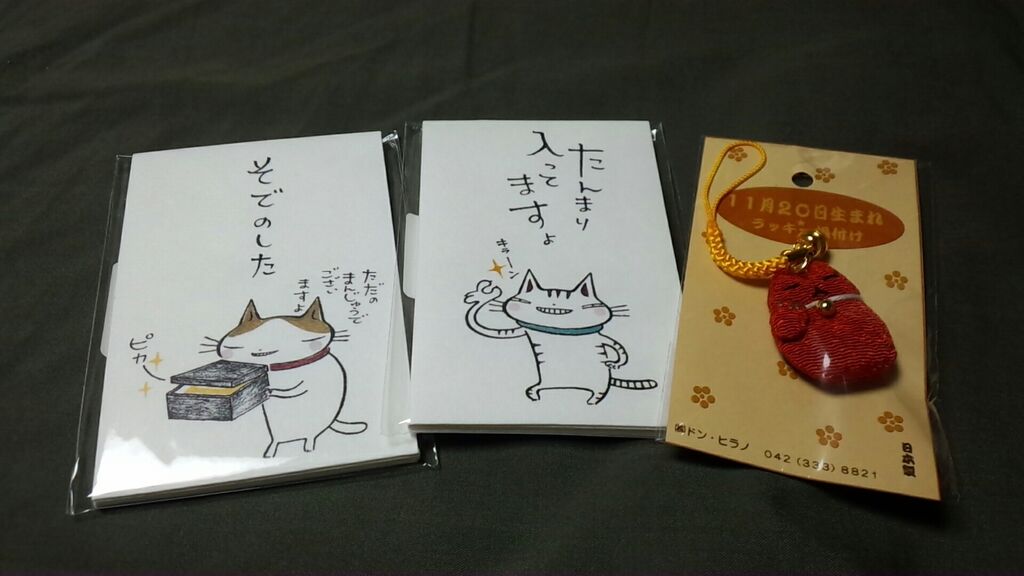 そでのした
ただの
まんじゅうで
ござい
ますよ
ピカ
たんまり
入って
ますょ
キラーン
11月20日生まれ
ラッキー猫根付け
㈱ドン・ヒラノ
042(333)8821
日本製